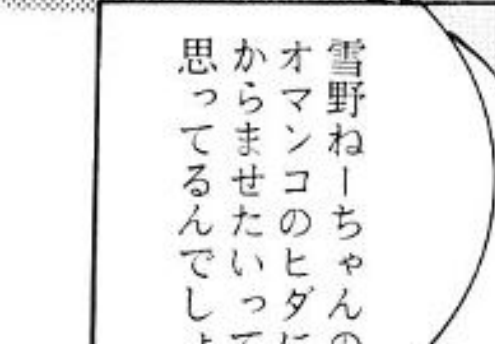 雪野ねーちゃんの
オマンコのヒダに
からませたいって
思ってるんでしょ